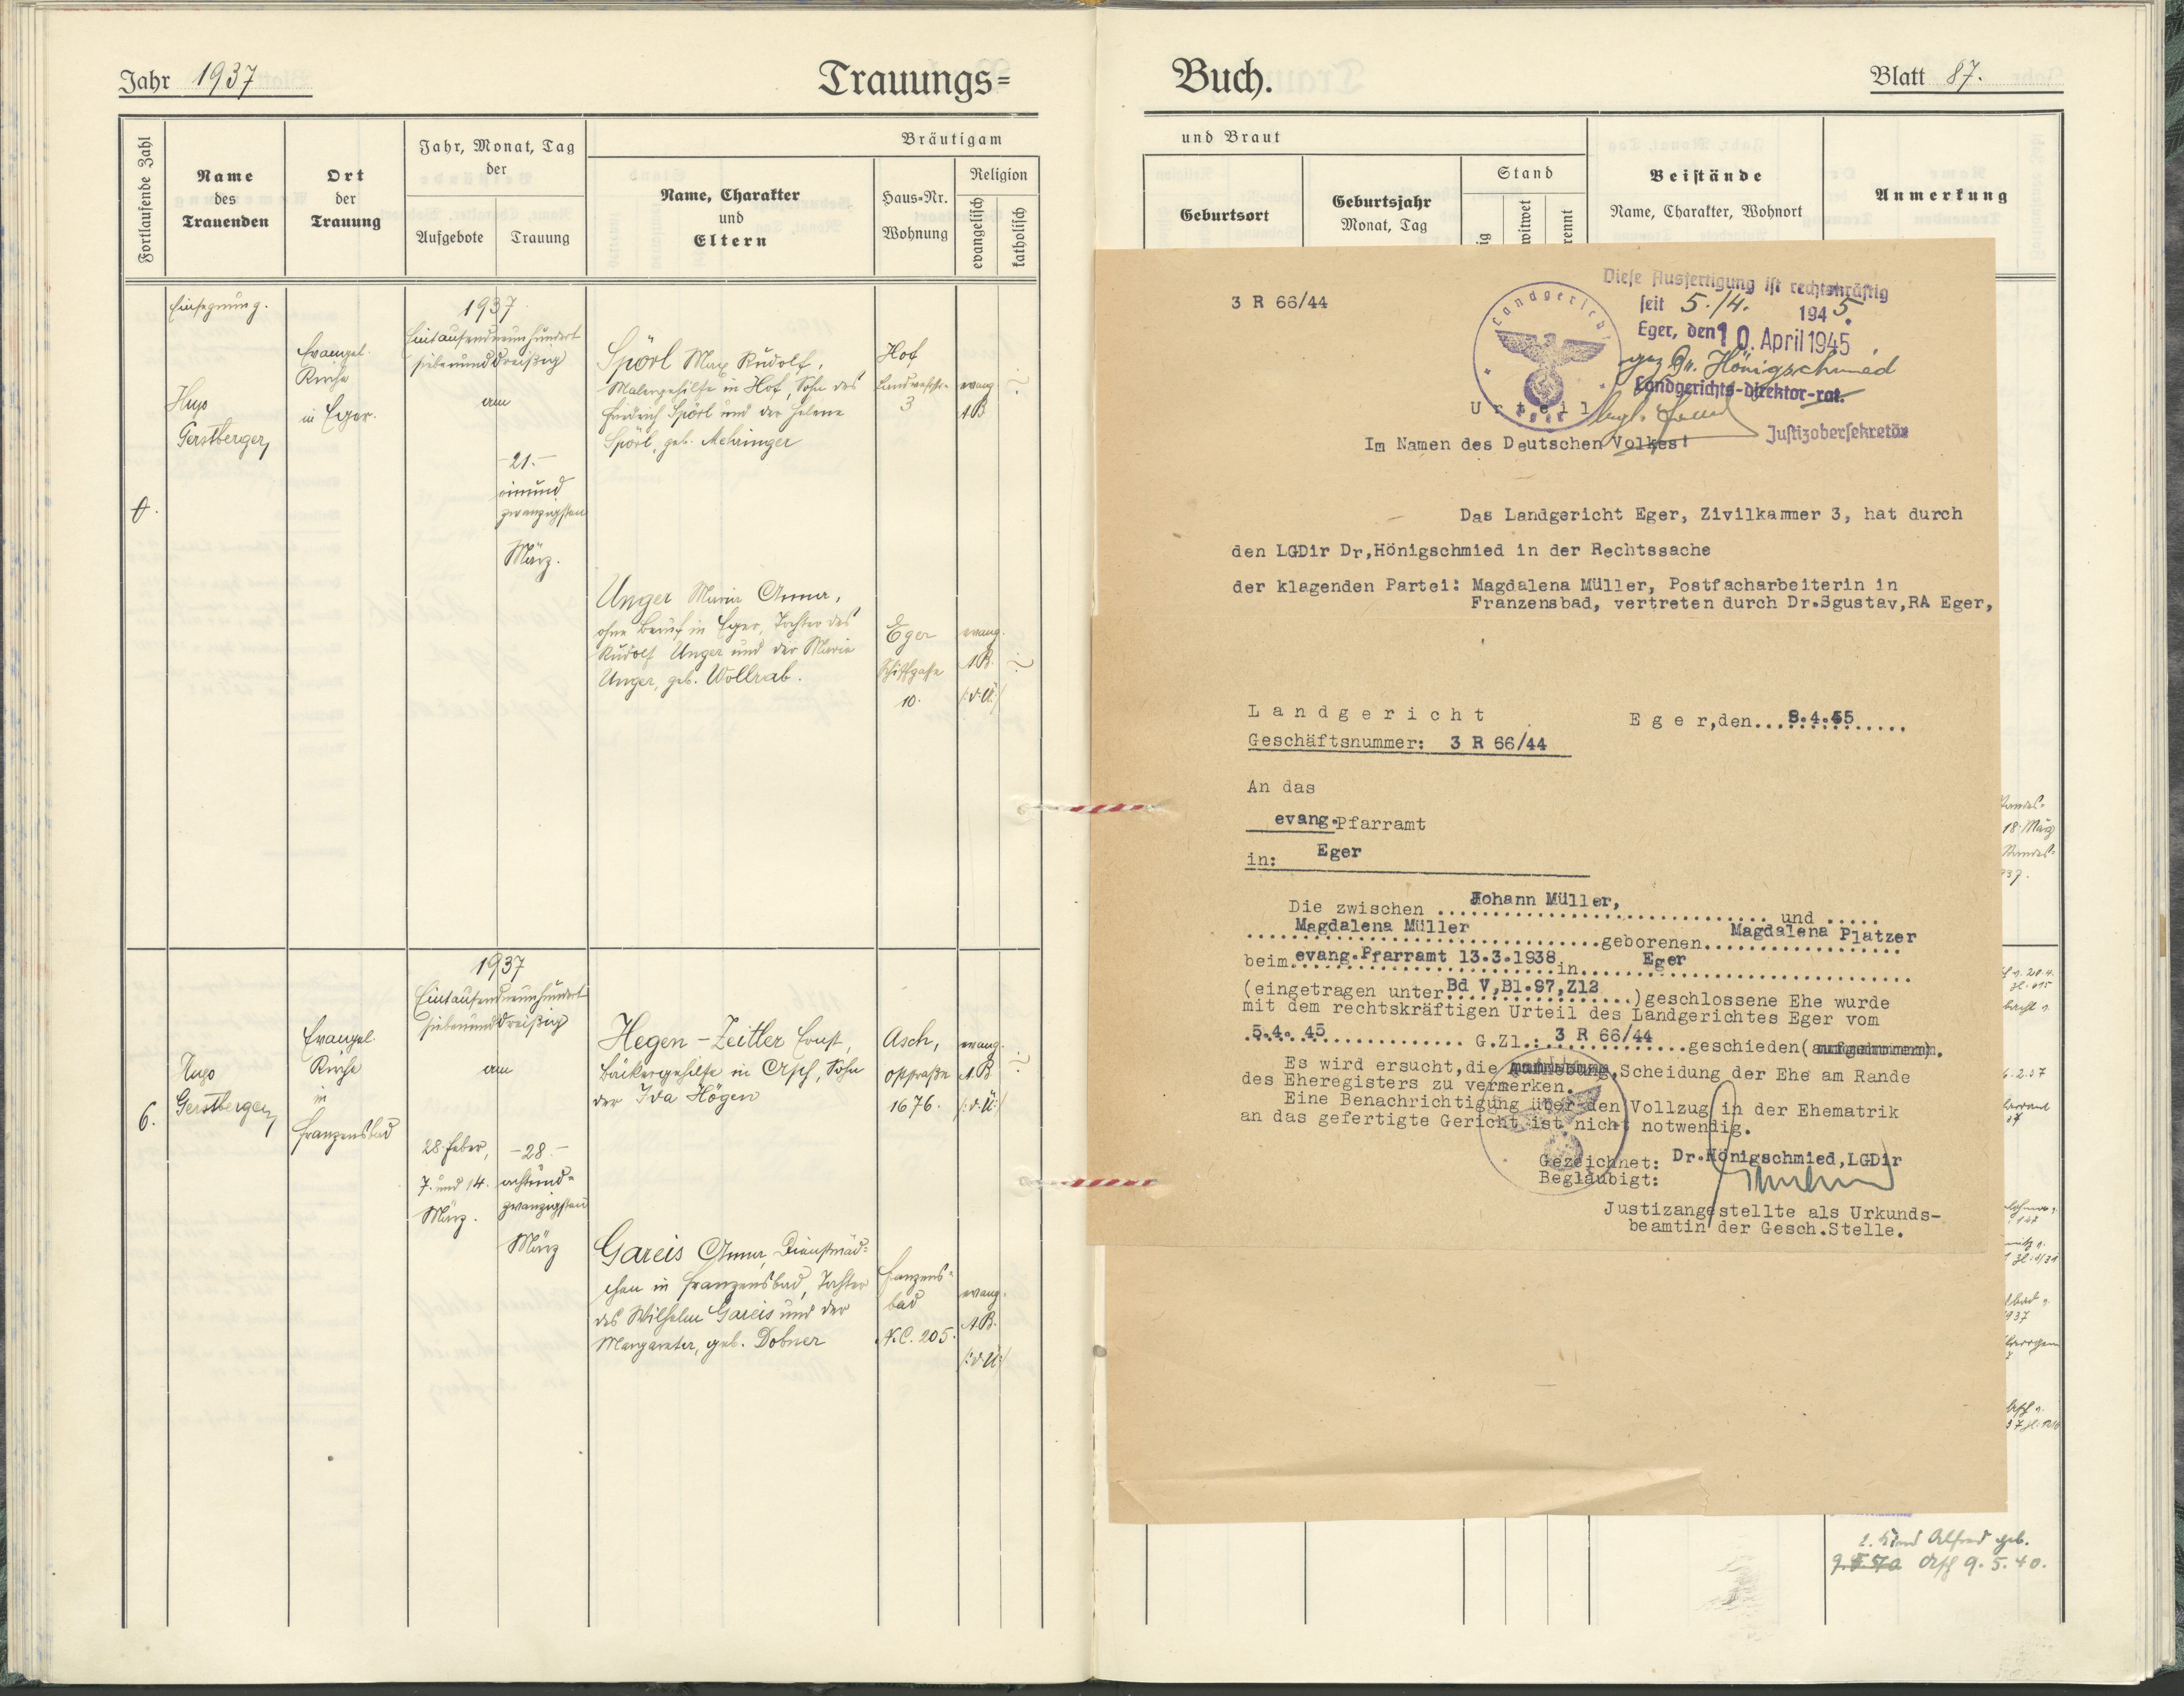 Jahr 1937
Trauungs=
Fortlaufende Zahl
Name
des
Trauenden
Ort
der
Trauung
Jahr, Monat, Tag
der
Aufgebote
Trauung
Bräutigam
Name, Charakter
und
Eltern
Haus-Nr.
Wohnung
Religion
evangelisch
katholisch
Einsegnung.
Hugo
Gerstberger
Evangel.
Kirche
in Eger.
1937
Eintausendneunhundert
siebenunddreißig
am
-21.-
einund
zwanzigsten
März.
Spörl Max Rudolf,
Malergehilfe in Hof, Sohn des
Friedrich Spörl und der Helene
Spörl, geb. Mehringer
Hof
3
evang.
A.B.
Unger Maria Anna,
ohne Beruf in Eger, Tochter des
Rudolf Unger und der Maria
Unger, geb. Wollrab.
Eger
Schiffgasse
10.
evang.
A.B.
/:d.Ü:/
6.
Hugo
Gerstberger
Evangel.
Kirche
in
Franzensbad
1937
Eintausendneunhundert
siebenunddreißig
am
28. Feber,
7. und 14.
März.
-28.-
achtund=
zwanzigsten
März
Hegen-Zeitler Ernst,
Bäckergehilfe in Asch, Sohn
der Ida Högen
Asch,
1676.
evang.
A.B.
/:d.Ü:/
Gareis Anna, Dienstmäd=
chen in Franzensbad, Tochter
des Wilhelm Gareis und der
Margareta, geb. Dobner
Franzens=
bad
N.C. 205.
evang.
A.B.
/:d.Ü:/
Buch.
Blatt 87.
und Braut
Geburtsort
Geburtsjahr
Monat, Tag
Stand
Beistände
Name, Charakter, Wohnort
Anmerkung
3 R 66/44
Landgericht
Eger
Diese Ausfertigung ist rechtskräftig
seit 5./4. 1945.
Eger, den 10. April 1945
gez Dr. Hönigschmied
Landgerichts-direktor-rat.
Justizobersekretär
Urteil
Im Namen des Deutschen Volkes!
Das Landgericht Eger, Zivilkammer 3, hat durch
den LGDir Dr,Hönigschmied in der Rechtssache
der klagenden Partei: Magdalena Müller, Postfacharbeiterin in
Franzensbad, vertreten durch Dr.Sgustav,RA Eger,
Landgericht
Eger,den...9.4.45......
Geschäftsnummer: 3 R 66/44
An das
evang.Pfarramt
in: Eger
Die zwischen Johann Müller, und
Magdalena Müller geborenen Magdalena Platzer
beim evang.Pfarramt 13.3.1938 in Eger
(eingetragen unter Bd V,Bl.97,Z12 )geschlossene Ehe wurde
mit dem rechtskräftigen Urteil des Landgerichtes Eger vom
5.4. 45 G.Zl.: 3 R 66/44 geschieden(aufgenommen).
Es wird ersucht,die Aufhebung,Scheidung der Ehe am Rande
des Eheregisters zu vermerken.
Eine Benachrichtigung über den Vollzug in der Ehematrik
an das gefertigte Gericht ist nicht notwendig.
Gezeichnet: Dr.Hönigschmied,LGDir
Beglaubigt:
Justizangestellte als Urkunds-
beamtin der Gesch.Stelle.
18. März
1. Kind Alfred geb.
Asch 9.5.40.